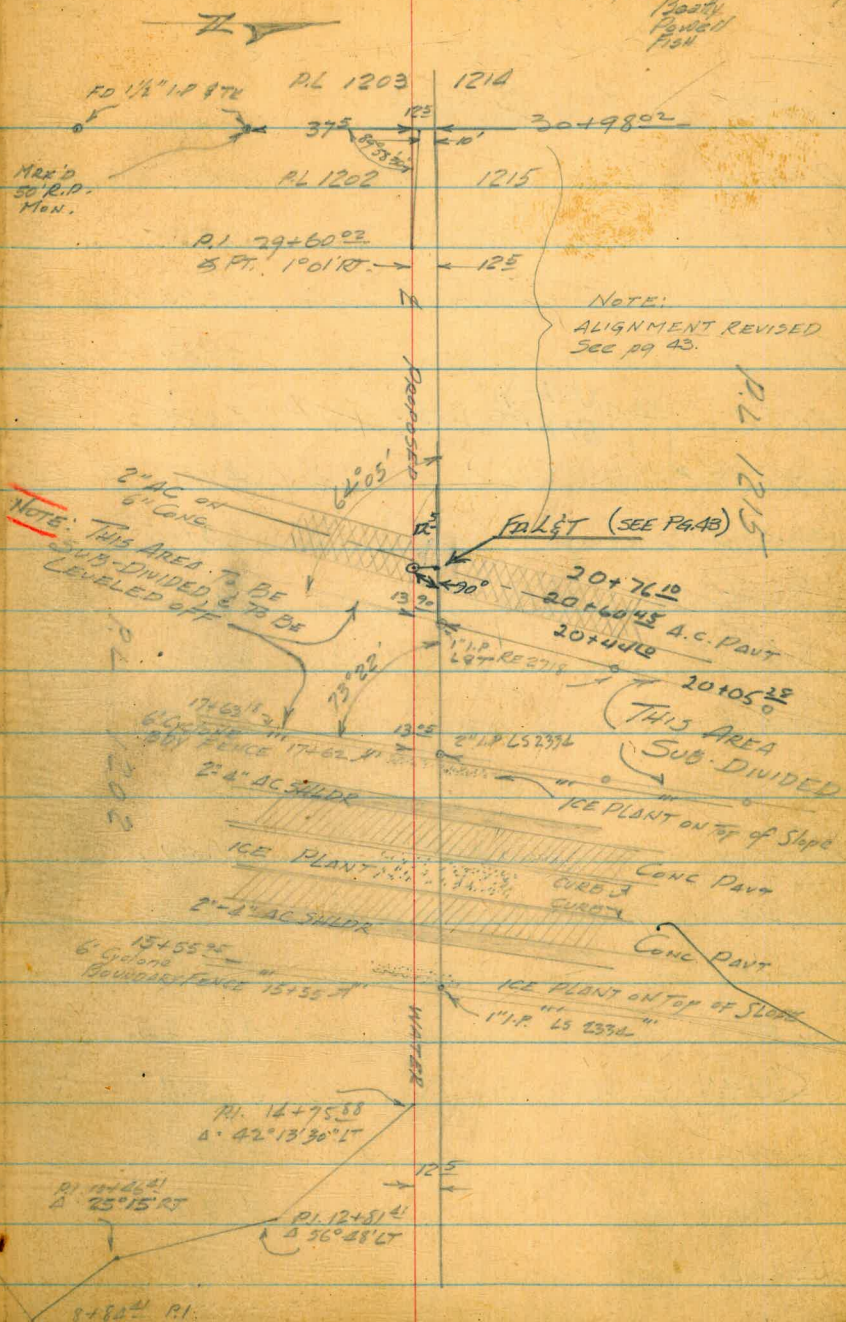 Beaty
Powell
Fish
N
FD 1½" I.P & TK
P.L 1203
1214
12.5
37.5
10'
30+98.02
89°58'30"
MRK'D
50' R.P.
MON.
P.L 1202
1215
P.I 29+60.02
& PT. 1°01' RT.
12.5
NOTE:
ALIGNMENT REVISED
See pg 43.
PROPOSED
P.L 1215
64°05'
2" AC ON
6" CONC
NOTE: THIS AREA TO BE
SUB-DIVIDED & TO BE
LEVELED OFF
FD. L&T (SEE PG. 43)
90°
20+76.10
20+60.45
A.C. PAVT
20+44.60
13.90
1" I.P.
L&T RE 2718
20+05.28
THIS AREA
SUB-DIVIDED
73°22'
P.L 1202
17+63.18
6' CYCLONE
BDY FENCE 17+62
13.05
2" I.P. LS 2334
ICE PLANT ON TOP of Slope
2"-4" AC SHLDR
ICE PLANT
CONC PAVT
CURB
CURB
2"-4" AC SHLDR
CONC PAVT
15+55.95
6' Cyclone
BOUNDARY FENCE 15+55
ICE PLANT ON TOP OF SLOPE
1" I.P. LS 2334
WATER
P.I. 14+75.88
Δ = 42°13'30" LT
12.5
25°15' RT
P.I. 12+81.41
Δ 56°48' LT
8+84.41 P.I.